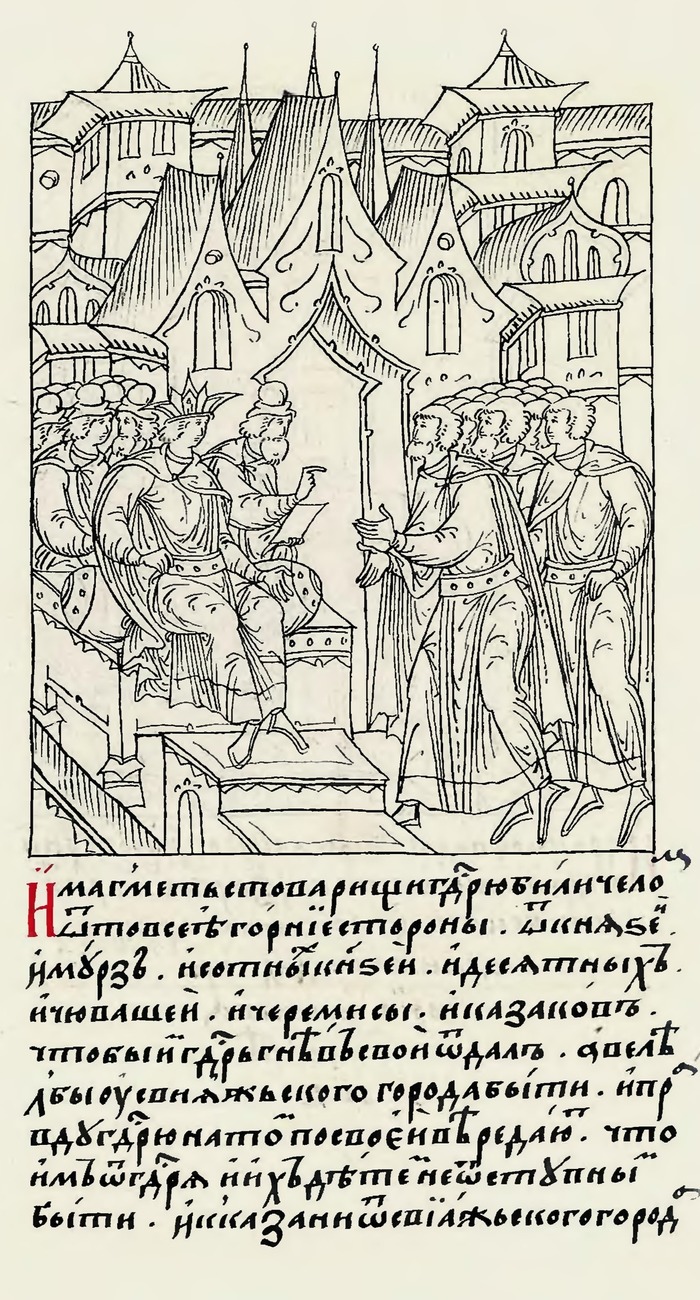 И҆магметьстоварищигдⷭ҇рюбиличело
ѿтовсеѣгорнїестороны . ѿкнѧѕеⷤ
имꙋрзъ . исотныⷯкн҃ѕеи . идесѧтныхъ .
ичювашеи . ичеремисы . иказаковъ .
чтобыиⷨгдⷭ҇рьгнѣвъсвоиѿдалъ . авелѣ
лбыоусвиѧжьскогогородабыти . ипрⷶ
вдꙋгдⷭ҇рюнатоⷨпосвоєивѣредаюⷮ . что
имъѿгдⷭ҇рѧ иихъдѣтеⷨнеѿстꙋпныⷨ
быти . искказанииѿсвїѧжьскогогородⷶ